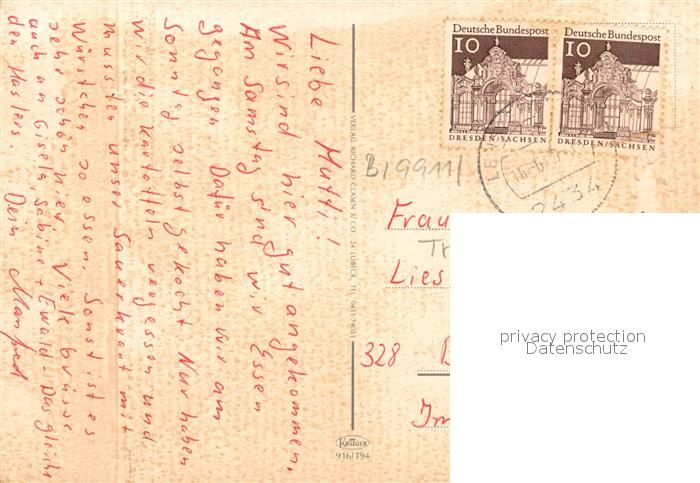 Liebe Mutti!
Wir sind hier gut angekommen.
Am Samstag sind wir Essen
gegangen Dafür haben wir am
Sonntag selbst gekocht Nur haben
wir die Kartoffeln vergessen und
mussten unser Sauerkraut mit
Würstchen so essen. Sonst ist es
sehr schön hier. Viele Grüsse
auch an Gisela, Sabine + Ewald - Das gleiche
den Haslers. Dein Manfred
VERLAG RICHARD CLASEN & CO · 24 LÜBECK, TEL. 0451/74051
KRÜGER
916/194
Deutsche Bundespost
10
DRESDEN/SACHSEN
Deutsche Bundespost
10
DRESDEN/SACHSEN
2434
B19911/
Frau
Tr
Lies
328
Im
privacy protection
Datenschutz